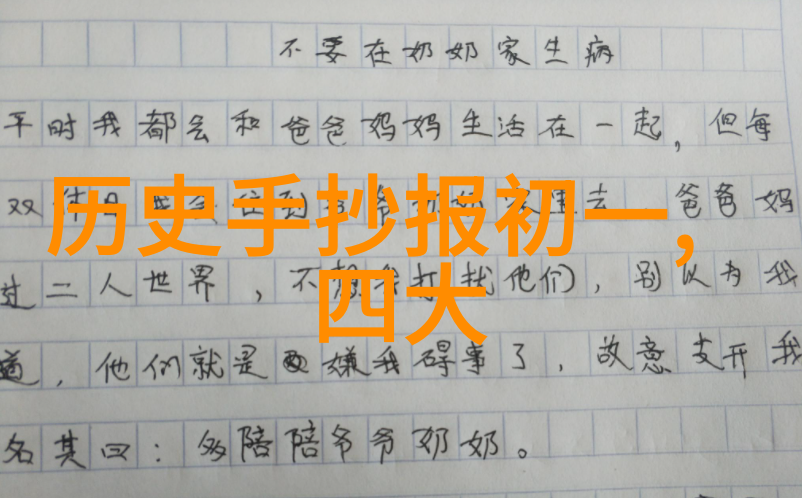 不要在奶奶家生病
平时我都会和爸爸妈妈生活在一起，但每
双休日
去，爸爸妈
历史手抄报初一，
过二人世界，不想我打扰他们，别以为我
四大
道，他们就是嫌我碍事了，故意支开我
名其曰：多陪陪爷爷奶奶。